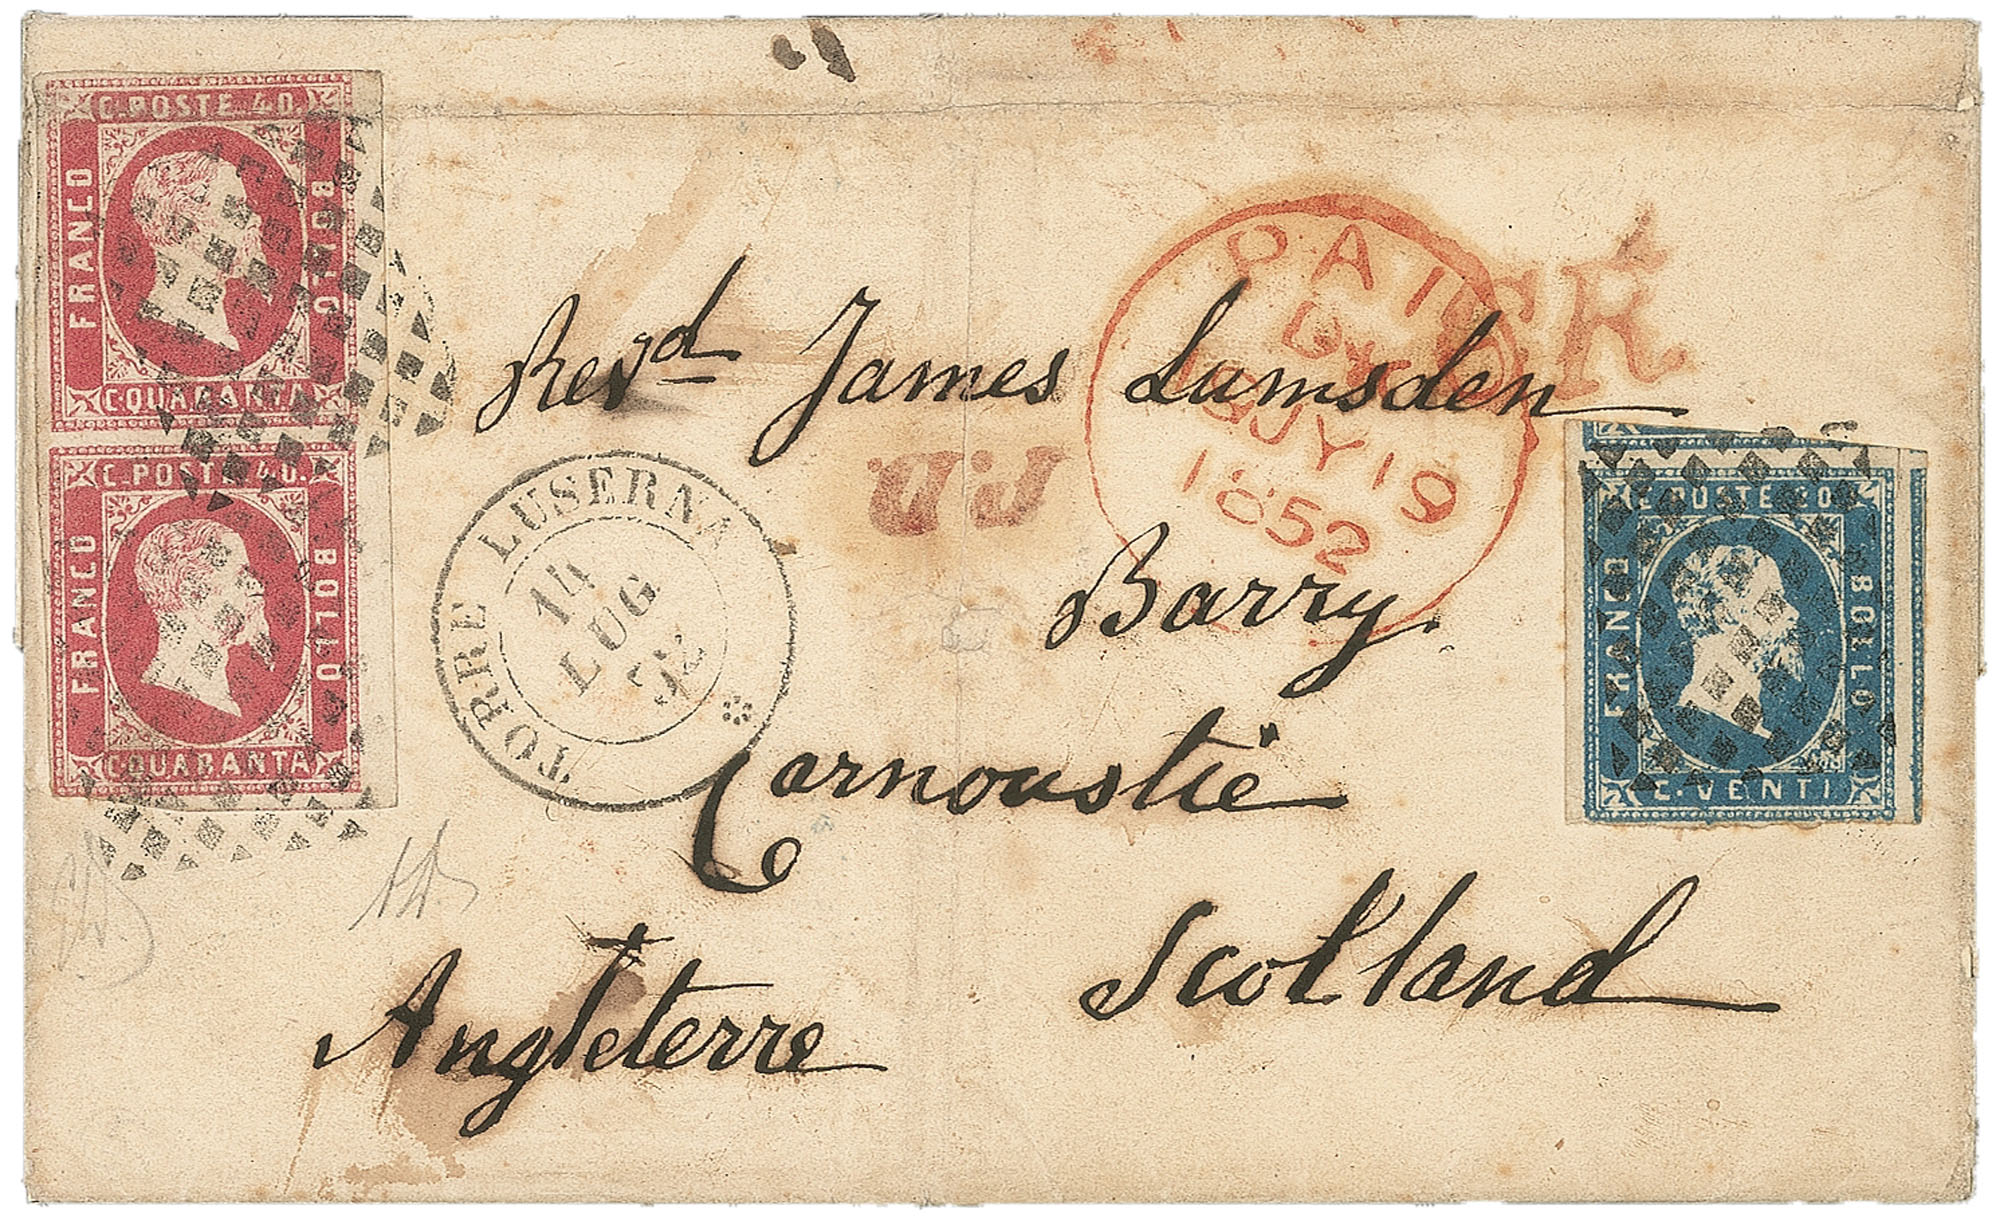 C. POSTE 40.
FRANCO
BOLLO
C. QUARANTA
C. POSTE 40.
FRANCO
BOLLO
C. QUARANTA
PAID
JY 19
1852
Revd James Lumsden
P.D.
TORRE LUSERNA
14
LUG
52
C. POSTE 20.
FRANCO
BOLLO
C. VENTI
Barry.
Carnoustie
Scotland
Angleterre